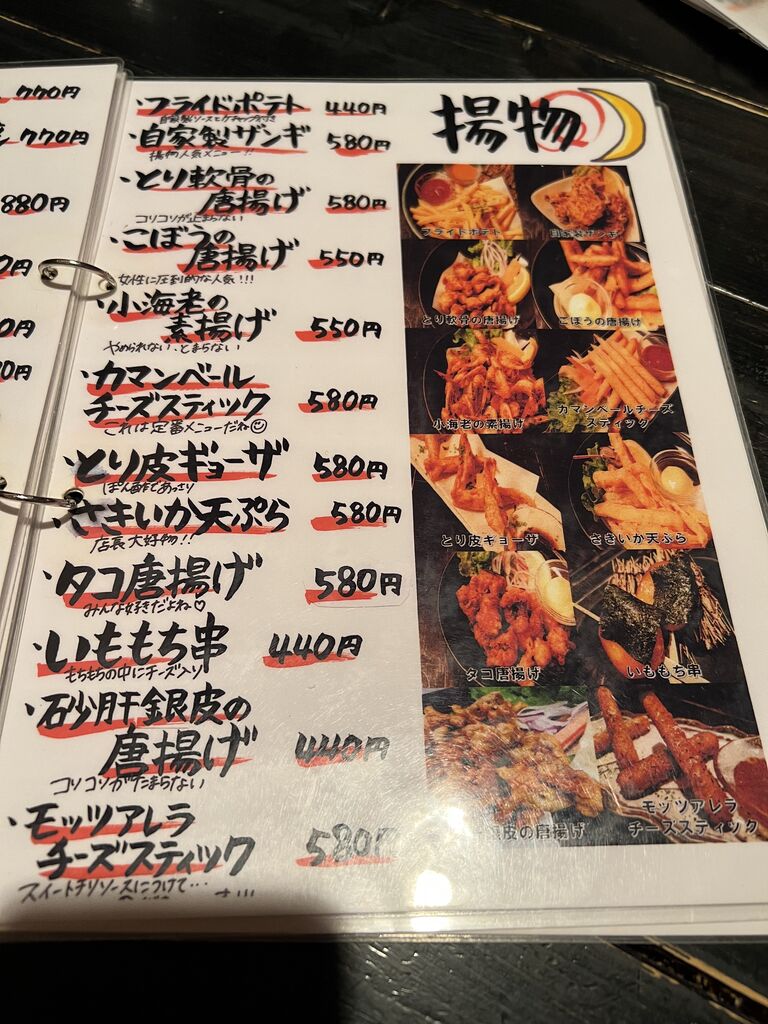 770円
770円
880円
0円
0円
揚物
・フライドポテト 440円
自家製ソースとケチャップ付き
・自家製ザンギ 580円
揚物人気メニュー!!
・とり軟骨の
唐揚げ 580円
コリコリが止まらない
・ごぼうの
唐揚げ 550円
女性に圧倒的な人気!!!
・小海老の
素揚げ 550円
やめられない、とまらない!
・カマンベール
チーズスティック 580円
これは定番メニューだね
・とり皮ギョーザ 580円
ぽん酢であっさり
・さきいか天ぷら 580円
店長大好物!!
・タコ唐揚げ 580円
みんな好きだよね♡
・いももち串 440円
もちもちの中にチーズ入り
・砂肝銀皮の
唐揚げ 440円
コリコリがたまらない
・モッツアレラ
チーズスティック 580円
スイートチリソースにつけて…
フライドポテト
自家製ザンギ
とり軟骨の唐揚げ
ごぼうの唐揚げ
小海老の素揚げ
カマンベールチーズ
スティック
とり皮ギョーザ
さきいか天ぷら
タコ唐揚げ
いももち串
銀皮の唐揚げ
モッツアレラ
チーズスティック